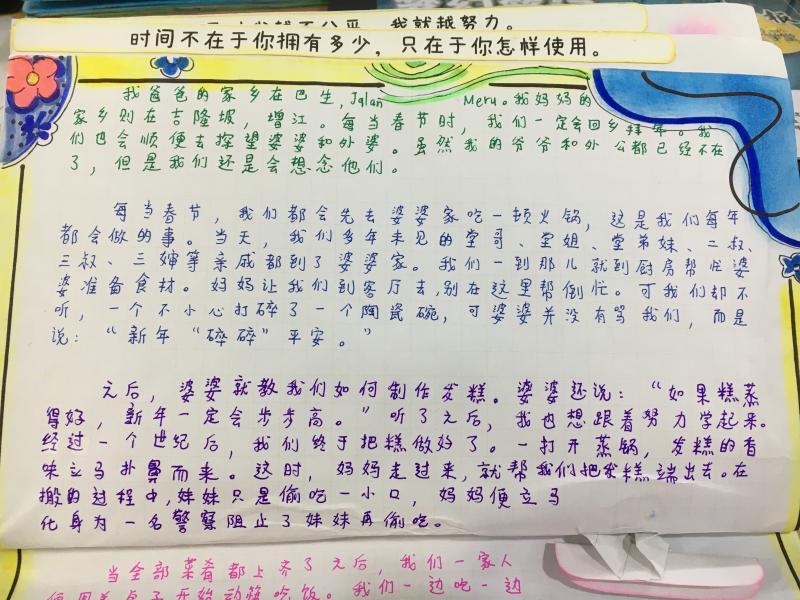 我就越努力。
时间不在于你拥有多少，只在于你怎样使用。
我爸爸的家乡在巴生，Jalan Meru。我妈妈的
家乡则在吉隆坡，增江。每当春节时，我们一定会回乡拜年。我
们也会顺便去探望婆婆和外婆。虽然我的爷爷和外公都已经不在
了，但是我们还是会想念他们。
每当春节，我们都会先去婆婆家吃一顿火锅，这是我们每年
都会做的事。当天，我们多年未见的堂哥、堂姐、堂弟妹、二叔、
三叔、三婶等亲戚都到了婆婆家。我们一到那儿就到厨房帮忙婆
婆准备食材。妈妈让我们到客厅去，别在这里帮倒忙。可我们却不
听，一个不小心打碎了一个陶瓷碗，可婆婆并没有骂我们，而是
说：“新年“碎碎”平安。”
之后，婆婆就教我们如何制作发糕。婆婆还说：“如果糕蒸
得好，新年一定会步步高。”听了之后，我也想跟着努力学起来。
经过一个世纪后，我们终于把糕做好了。一打开蒸锅，发糕的香
味立马扑鼻而来。这时，妈妈走过来，就帮我们把发糕端出去。在
搬的过程中，妹妹只是偷吃一小口，妈妈便立马
化身为一名警察阻止了妹妹再偷吃。
当全部菜肴都上齐了之后，我们一家人
便围着桌子开始动筷吃饭。我们一边吃一边